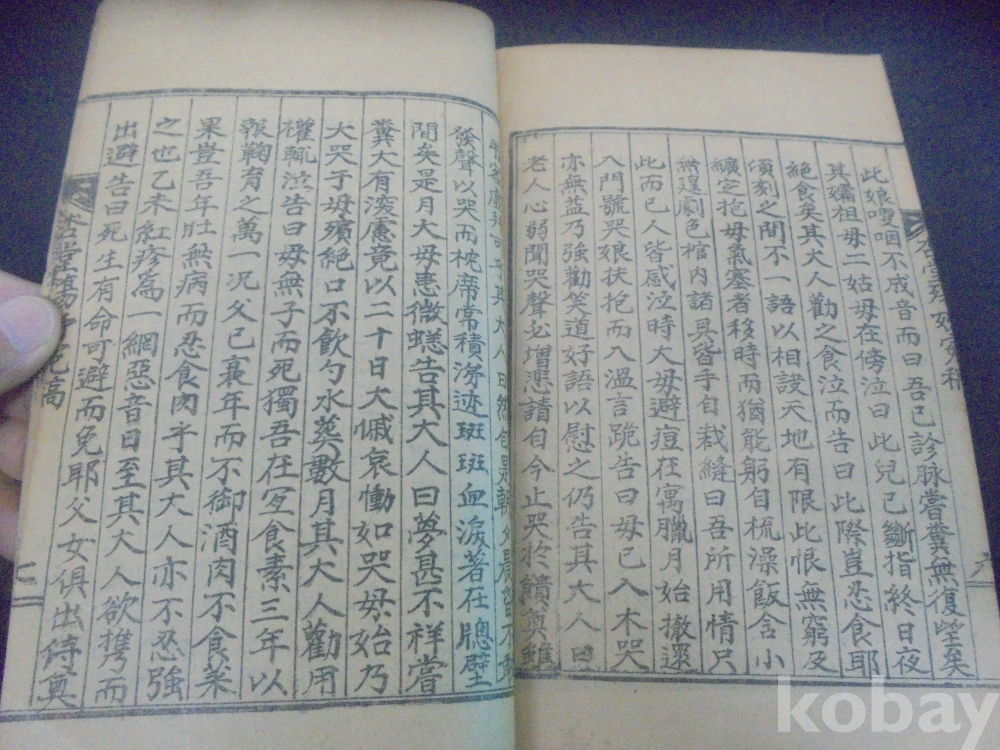 此娘哽咽不成音而曰吾已診脉嘗糞無復望矣
其孀祖母二姑母在傍泣曰此兒已斷指終日夜
絶食矣其大人勸之食泣而告曰此際豈忍食耶
頃刻之間不一語以相訣天地有限此恨無窮及
纊定抱母氣塞者移時而猶能躬自梳澡飯含小
無遑劇色棺內諸具皆手自裁縫曰吾所用情只
此而已人皆感泣時大母避痘在寓臘月始撤還
入門號哭娘扶抱而入溫言跪告曰母已入木哭
亦無益乃強勸笑道好語以慰之仍告其大人曰
老人心弱聞哭聲必增悲請自今止哭於饋奠雖
發聲以哭而枕席常積涕迹斑斑血淚著在牕壁
間矣是月大母患微蟋告其大人曰夢甚不祥嘗
糞大有深慮竟以二十日大慽哀慟如哭母始乃
大哭于母殯絶口不飮勺水葬數月其大人勸用
權輒泣告曰母無子而死獨吾在宜食素三年以
報鞠育之萬一況父已衰年而不御酒肉不食菜
果豈吾年壯無病而忍食肉乎其大人亦不忍強
之也乙未紅疹爲一網惡音日至其大人欲携而
出避告曰死生有命可避而免耶父女俱出侍奠
二
kobay